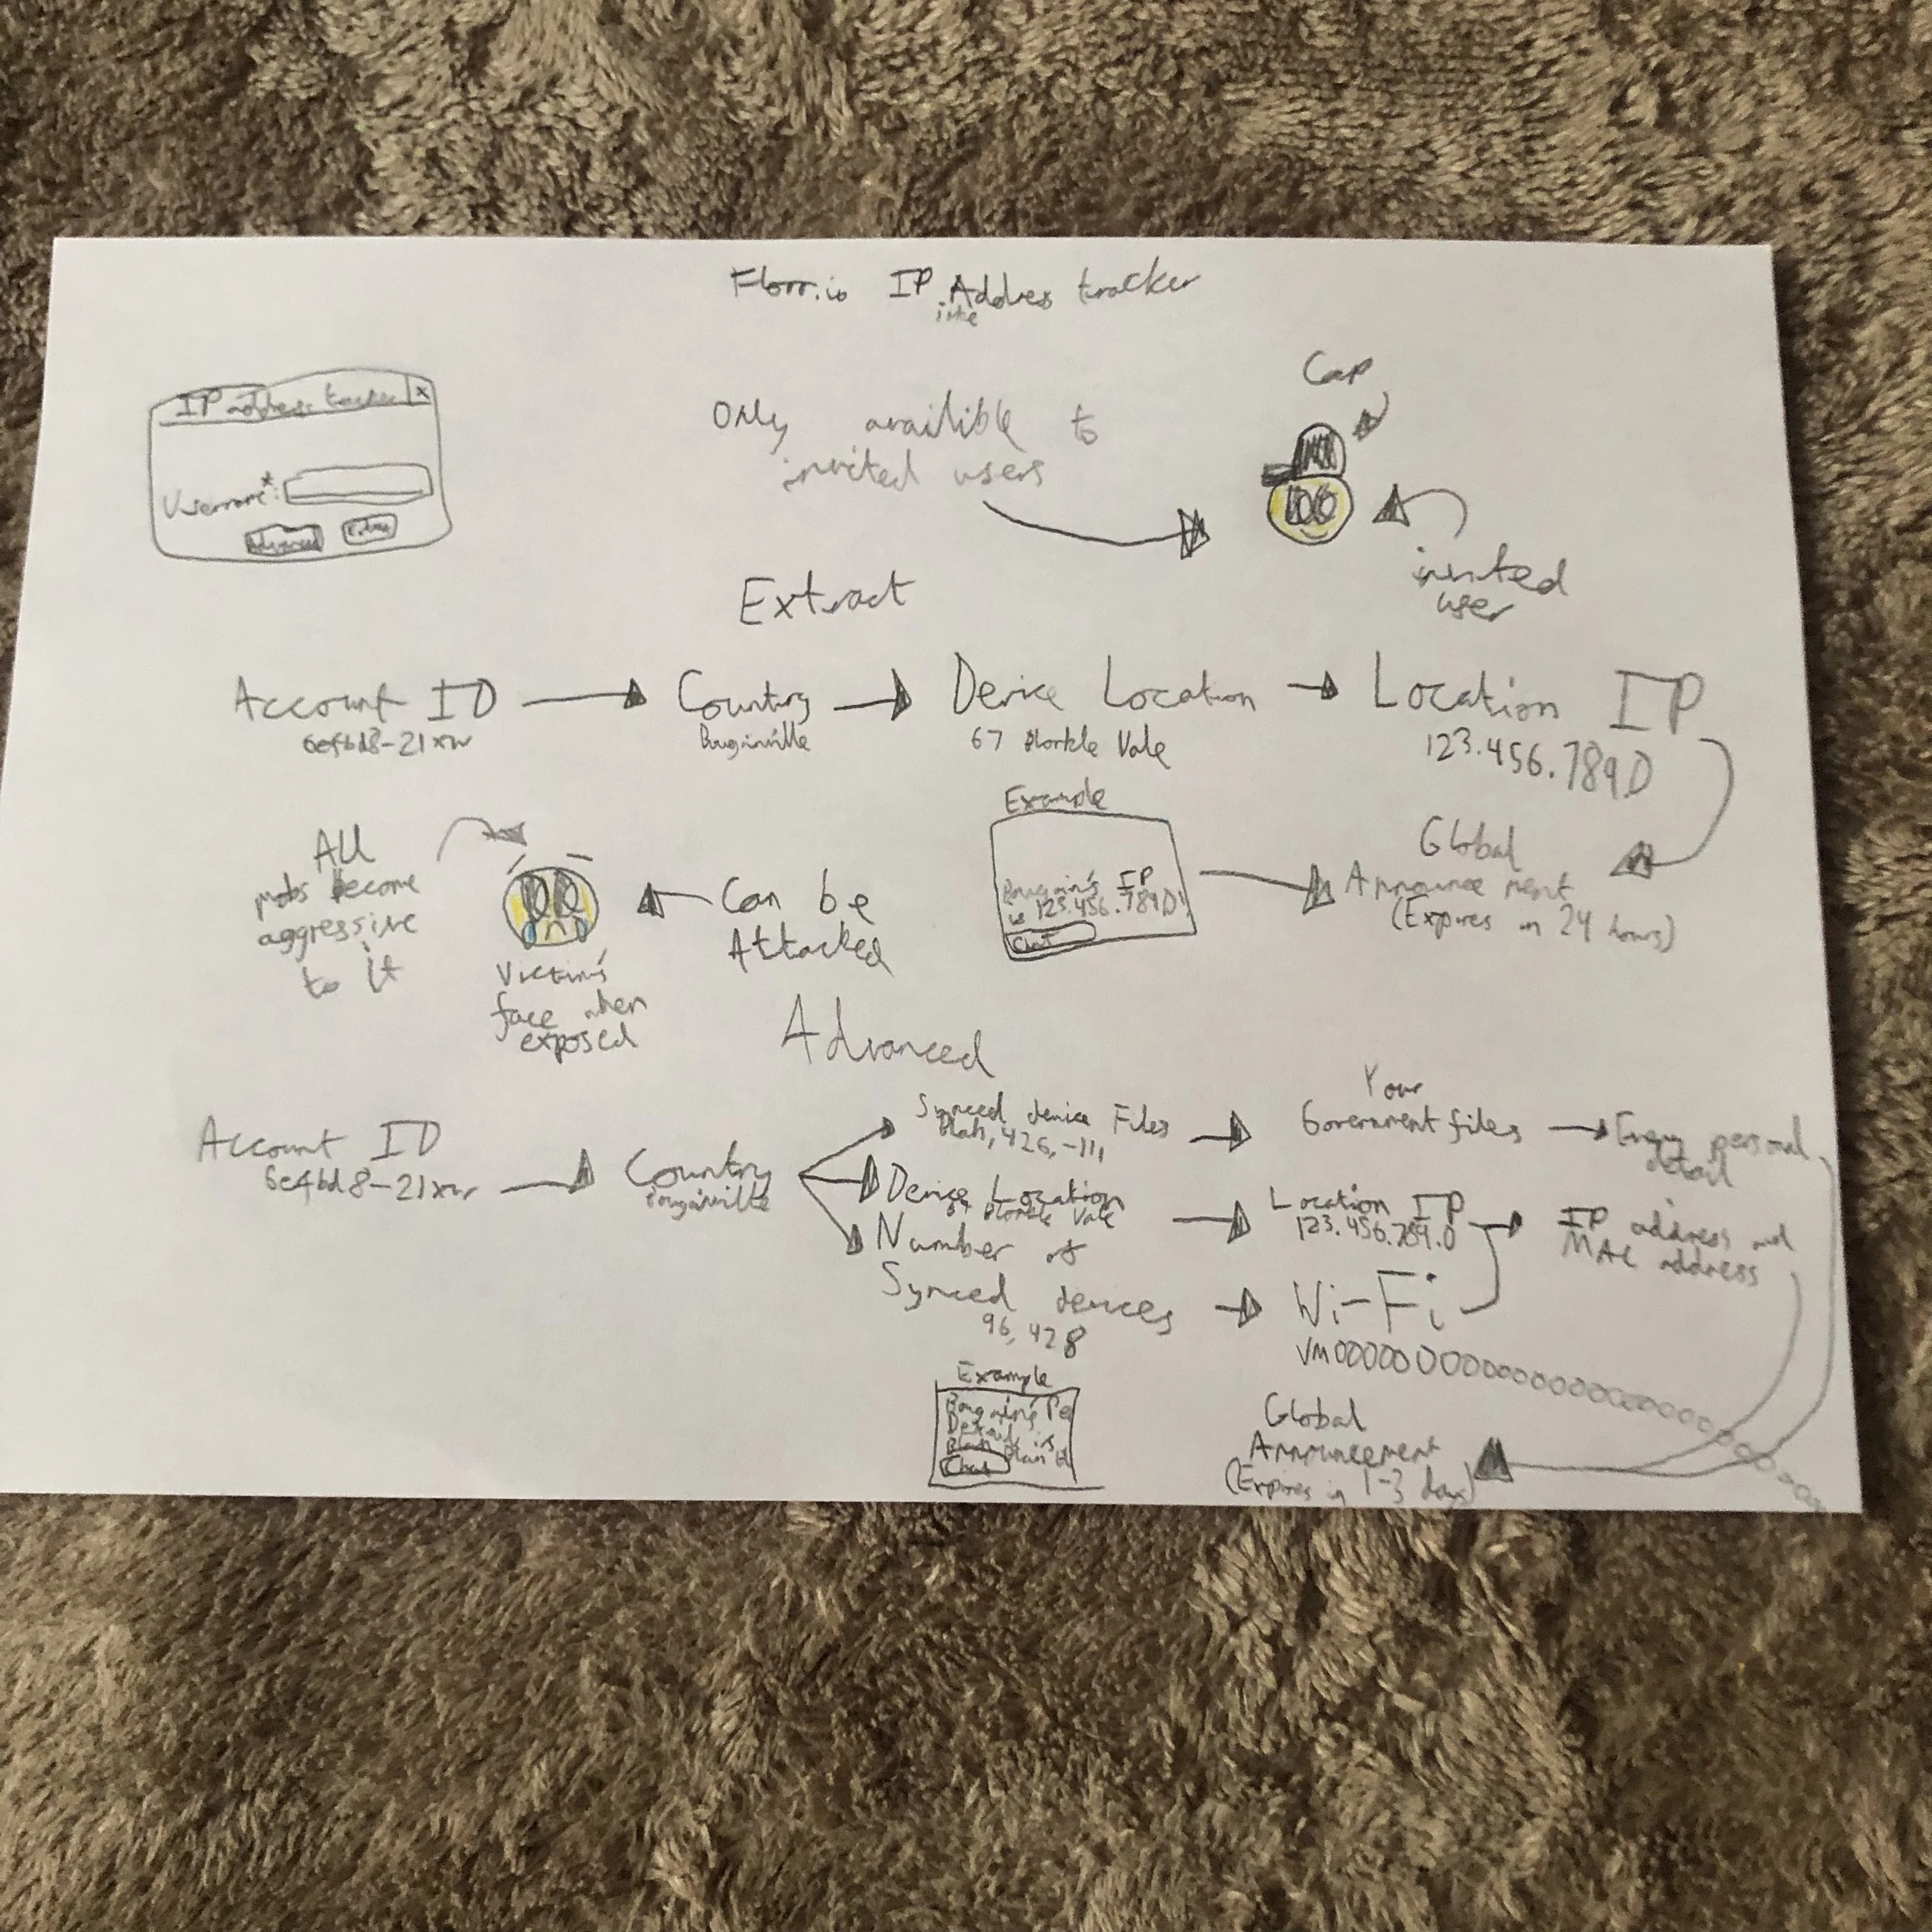 Florr.io IP Address tracker
IP address tracker x
Username*:
Advanced Extract
Only availible to
invited users
Cap
100
invited
user
Extract
Account ID → Country → Device Location → Location IP
67 Blorkle Vale
123.456.789.0
Example
IP
is 123.456.789.0
Chat
Global
Announcement
(Expires in 24 hours)
Can be
Attacked
All
mobs become
aggressive
to it
Victim's
face when
exposed
Advanced
Account ID
6e4bd8-21xw
Country
Synced device Files
Blah, 426, -111
Your
Government files
Every personal
detail
Device Location
67 Blorkle Vale
Location IP
123.456.789.0
IP address and
MAC address
Number of
Synced devices
96, 428
Wi-Fi
Example
Chat
Global
Announcement
(Expires in 1-3 days)